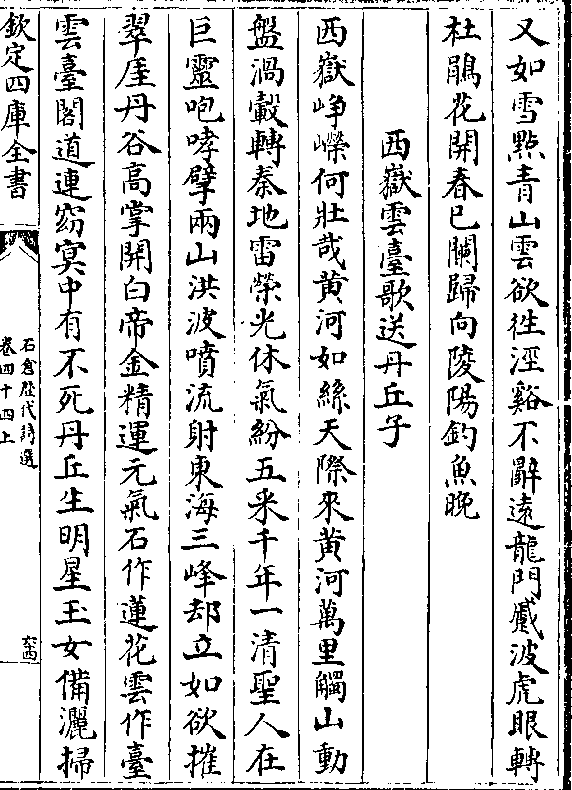 又如雪點青山雲欲往涇谿不辭遠龍門蹙波虎眼轉
杜鵑花開春已闌歸向陵陽釣魚晚
西嶽雲臺歌送丹丘子
西嶽崢嶸何壯哉黃河如絲天際來黃河萬里觸山動
盤渦轂轉秦地雷榮光休氣紛五采千年一清聖人在
巨靈咆哮擘兩山洪波噴流射東海三峰却立如欲摧
翠厓丹谷高掌開白帝金精運元氣石作蓮花雲作臺
雲臺閣道連窈冥中有不死丹丘生明星玉女備灑掃
欽定四庫全書
石倉歷代詩選
卷四十四上